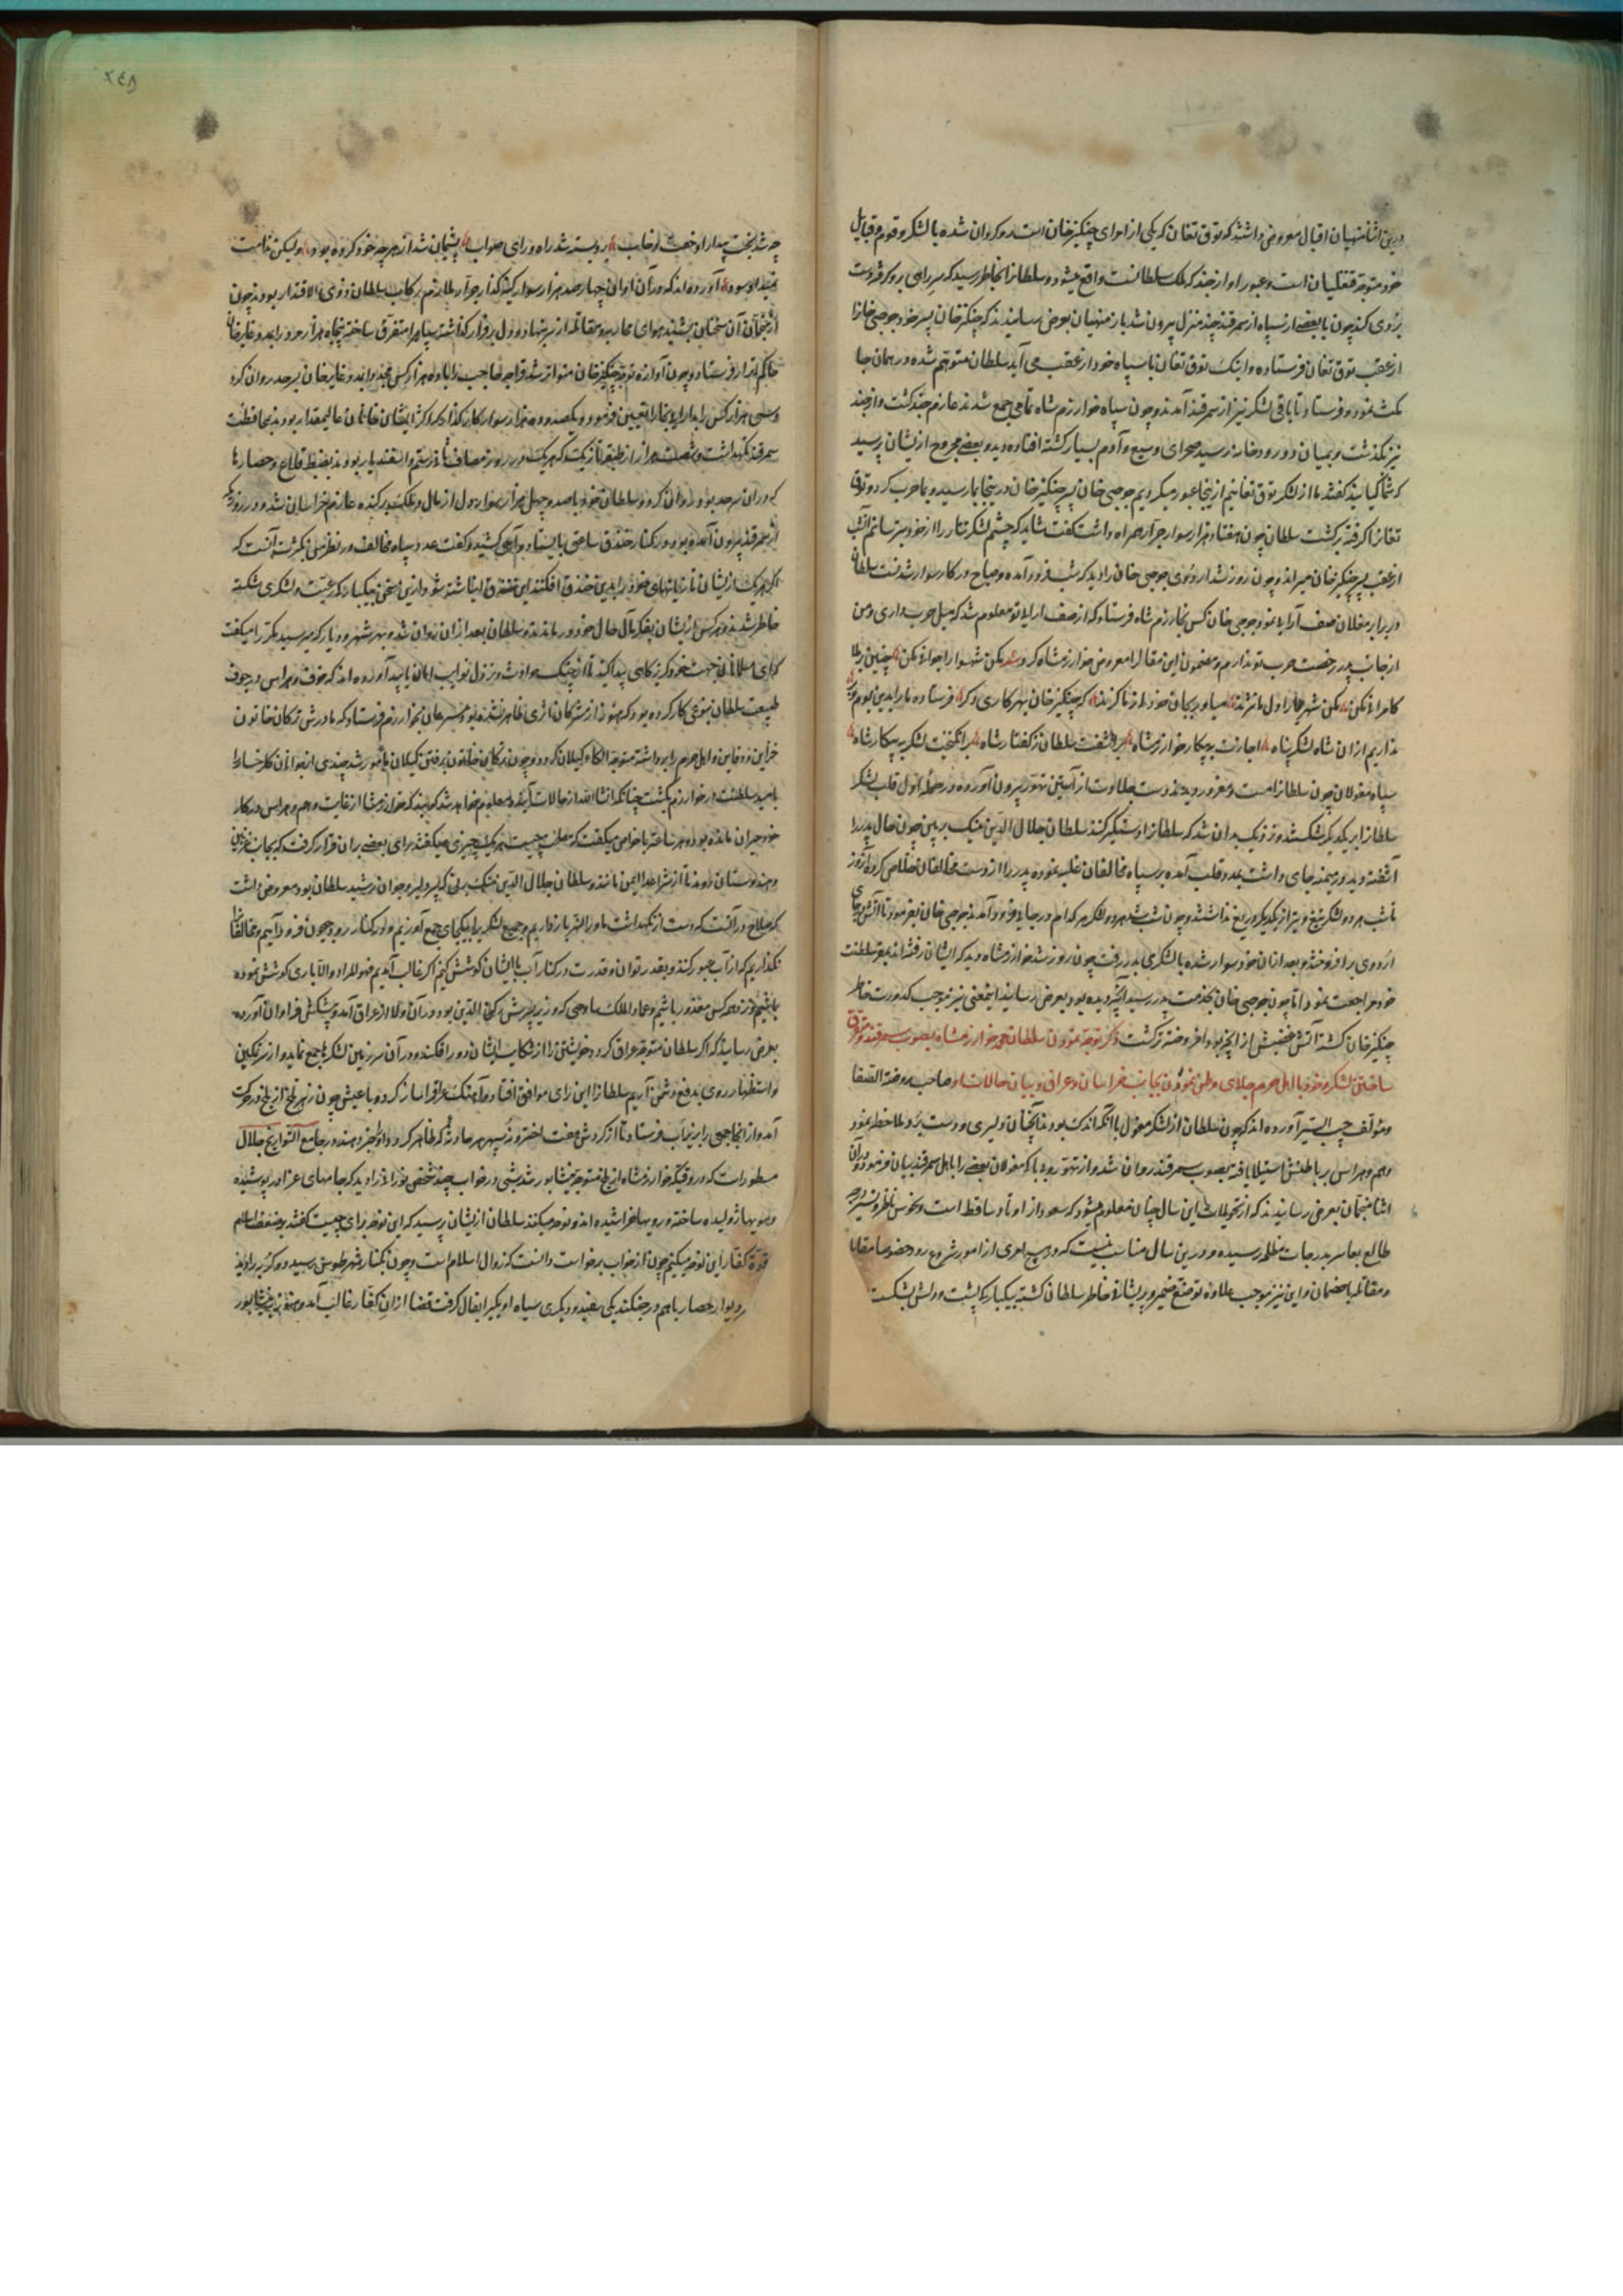 درین اثنا منهیان اقبال معروض داشتند که توق تغان که یکی از امرای چنگیزخان است روگردان شده با لشکر و قوم و قبایل
خود متوجه قنقلیان است و عبور او از جند که ملک سلطانست واقع میشود و سلطانرا بخاطر رسید که سر راهی برو گرفته دست
بردی کند چون با بعضی از سپاه از سمرقند چند منزل بیرون شد باز منهیان بعرض رسانیدند که چنگیزخان پسر خود جوجی خانرا
از عقب توق تغان فرستاده و اینک توق تغان با سپاه خود از عقب می آید سلطان متوهم شده در همان جا
مکث نمود و فرستاد تا باقی لشکر نیز از سمرقند آمدند و چون سپاه خوارزم شاه تمامی جمع شدند عازم جند گشت و از جند
نیز بگذشت و بمیان دو رودخانه رسید صحرای وسیع و آدم بسیار کشته افتاده دید و بعضی مجروح از یشان پرسید
که شما کیانید گفتند ما از لشکر توق تغانیم از ینجا عبور میکردیم جوجی خان پسر چنگیزخان درینجا بما رسید و بما حرب کرد و توق
تغانرا گرفته برگشت سلطان چون هفتاد هزار سوار جرار همراه داشت گفت شاید که چشم لشکر تاتار را از خود بترسانم آنشب
از عقب پسر چنگیزخان میراند و چون روز شد اردوی جوجی خان را دید که شب فرود آمده و صباح در کار سوار شدنست سلطان
در برابر مغلان صف آرایی نمود جوجی خان کس بخارزم شاه فرستاد که از صف آرایی تو معلوم شد که میل حرب داری و من
از جانب پدر رخصت حرب تو ندارم و مضمون این مقال را معروض خوارزمشاه کرد
سپاه مغولان چون سلطانرا مست و مغرور دیدند دست جلادت از آستین تهور بیرون آورده در حمله اول قلب لشکر
سلطانرا بریکدیگر شکستند و نزدیک بدان شد که سلطانرا دستگیر کنند سلطان جلال الدین منک برنی چون حال پدر را
آشفته دید و در میمنه جای داشت بمدد قلب آمده بر سپاه مخالفان غلبه نموده پدر را از دست مخالفان خلاص کرد و آنروز
تا شب هر دو لشکر تیغ و تیر از یکدیگر دریغ نداشتند و چون شب شد هر دو لشکر هر کدام در جایی فرود آمدند جوجی خان بفرمود تا آتش در جای
اردوی بر افروختند و بعد از آن خود سوار شده با لشکری بدر رفت چون روز شد خوارزمشاه دید که ایشان رفته اند بمقر سلطنت
خود مراجعت نمود اما چون جوجی خان بخدمت پدر رسید آنچه دیده بود بعرض رسانید اینمعنی نیز موجب کدورت خاطر
چنگیزخان گشته آتش غضبش از آنچه بود افروخته تر گشت ذکر توجه نمودن سلطان محمد خوارزمشاه بصوب سمرقند و متفرق
ساختن لشکر خود با اهل حرم و جلای وطن نمودن بجانب خراسان و عراق و بیان حالات او صاحب روضة الصفا
و مؤلف حبیب السیر آورده اند که چون سلطان از لشکر مغول با آنکه اندک بودند آنچنان دلیری و دست برد ملاحظه نمود
وهم و هراس بر باطنش استیلا یافته بصوب سمرقند روان شد و از تهور و بی باکی مغولان بعضی را با اهل سمرقند بیان فرمود و در آن
اثنا منجمان بعرض رسانیدند که از تحویلات این سال چنان معلوم میشود که سعود از اوتاد ساقط است و نحوس ناظر
طالع بعاشر بدرجات مظلمه رسیده و درین سال مناسب نیست که در هیچ امری از امور شروع رود خصوصا مقابله
و مقاتله با خصمان و این نیز موجب علاوه توزع ضمیر و پریشانی خاطر سلطان گشته بیکبارگی پشت و دلش بشکست
۲٤۸
چو شد بخت بیدار او خفت و خاب برو بسته شد راه و رای صواب پشیمان شد از هرچه خود کرده بود ولیکن ندامت
نمیداد سود آورده اند که در آن اوان چهار صد هزار سوار نیزه گذار جرار ملازم رکاب سلطان ذوی الاقتدار بودند چون
از منجمان آن سخنان بشنید هوای محاربه و مقاتله از سر بنهاد و دل بر فرار گذاشته سپاه را متفرق ساخته پنجاه هزار مرد را بمدد غایرخان
حاکم اترار فرستاد و چون آوازه توجه چنگیزخان متواتر شد قراجه حاجب را با ده هزار کس دیگر بمدد غایرخان بر حد روان کرد
و سی هزار کس را به بخارا تعیین فرمود و یکصد و ده هزار سوار کارگذار که اکثر ایشان خانان عالیمقدار بودند بمحافظت
سمرقند نگهداشت و شصت هزار از طبقه تازیک که هر یک در روز مصاف ثانی رستم و اسفندیار بودند بضبط قلاع و حصارها
که در آن سرحد بود روان کرد و سلطان خود با صد و چهل هزار سوار دل از مال و ملک برکنده عازم خراسان شد و در روزی که
از سمرقند بیرون آمده بود در کنار خندق ساعتی بایستاد و آهی کشید و گفت عدد سپاه مخالف در نظر من بمرتبه آنست که
اگر هر یک از یشان تازیانهای خود را بدین خندق افکنند این خندق انباشته شود و ازین سخن بیکبارگی رعیت و لشکری شکسته
خاطر شدند و هر کس از یشان بفکر مآل حال خود در ماندند و سلطان بعد از آن روان شد و بهر شهر و دیار که میرسید مکرر میگفت
که ای مسلمانان جهت خود گریزگاهی پیدا کنید تا از چنگ حوادث و نزول نوایب امان یابید آورده اند که خوف و هراس در جوف
طبیعت سلطان بنوعی کار کرده بود که هنوز از مشرکان اثری ظاهر نشده بود مسرعان بخوارزم فرستاد که مادرش ترکان خاتون
خزاین و دفاین و اهل حرم را برداشته متوجه الکاء گیلان گردد و چون ترکان خاتون برفتن گیلان مأمور شد چندی از خوانان که خیال
بامید سلطنت در خوارزم بکشت چنانکه انشاالله از حالات آینده معلوم خواهد شد گویند که خوارزمشاه از غایت وهم و هراس در کار
خود حیران مانده بود و هر ساعت با خواص میگفت که مصلحت چیست هر یک چیزی میگفتند رای بعضی بر آن قرار گرفت که بجانب غزنین
و هندوستان روند تا از شر اعدا ایمن مانند و سلطان جلال الدین منک برنی که پسر دلیر و جوان رشید سلطان بود معروض داشت
که صلاح در آنست که دست از نگهداشت ماوراءالنهر باز داریم و جمیع لشکر را بیکجای جمع آوریم و در کنار رود جیحون فرود آییم و مخالفانرا
نگذاریم که از آب عبور کنند و بقدر توان و قدرت در کنار آب با ایشان کوشش کنیم اگر غالب آمدیم فهو المراد والا باری کوشش نموده
باشیم و نزد همه کس معذور باشیم و عماد الملک ساوجی که وزیر پسرش رکن الدین بود و در آن ولا از عراق آمده و پیشکش فراوان آورده
بعرض رسانید که اگر سلطان متوجه عراق گردد خویشتن را از شکایت ایشان دور افکند و در آن سرزمین لشکرها جمع نماید و از سر تمکین
و استظهار روی بدفع دشمن آریم سلطانرا این رای موافق افتاد و آهنگ عراق را ساز کرد و با عیش چون زهر تلخ از بلخ در حرکت
آمد و از آنجا جمعی را به پنجاب فرستاد تا از گردش هفت اختر و نه سپهر هر حادثه که ظاهر گردد او را خبر دهند و در جامع التواریخ جلال
مسطورست که در وقتیکه خوارزمشاه از بلخ متوجه نیشابور شد شبی در خواب چند شخص نورانی را دید که جامهای عزا در پوشیده
و مویها ژولیده ساخته و رویها خراشیده اند و نوحه میکنند سلطان از یشان پرسید که این نوحه برای چیست گفتند بر ضعف اسلام
قوة کفار این نوحه میکنیم چون از خواب برخواست دانست که زوال اسلام است و چون بکنار شهر طوس رسید دو گربه را دید
بر دیوار حصار با هم در جنگند یکی سفید و دیگری سیاه او بیکی فال گرفت قضا را از آن کفار غالب آمد و هنوز به نیشابور